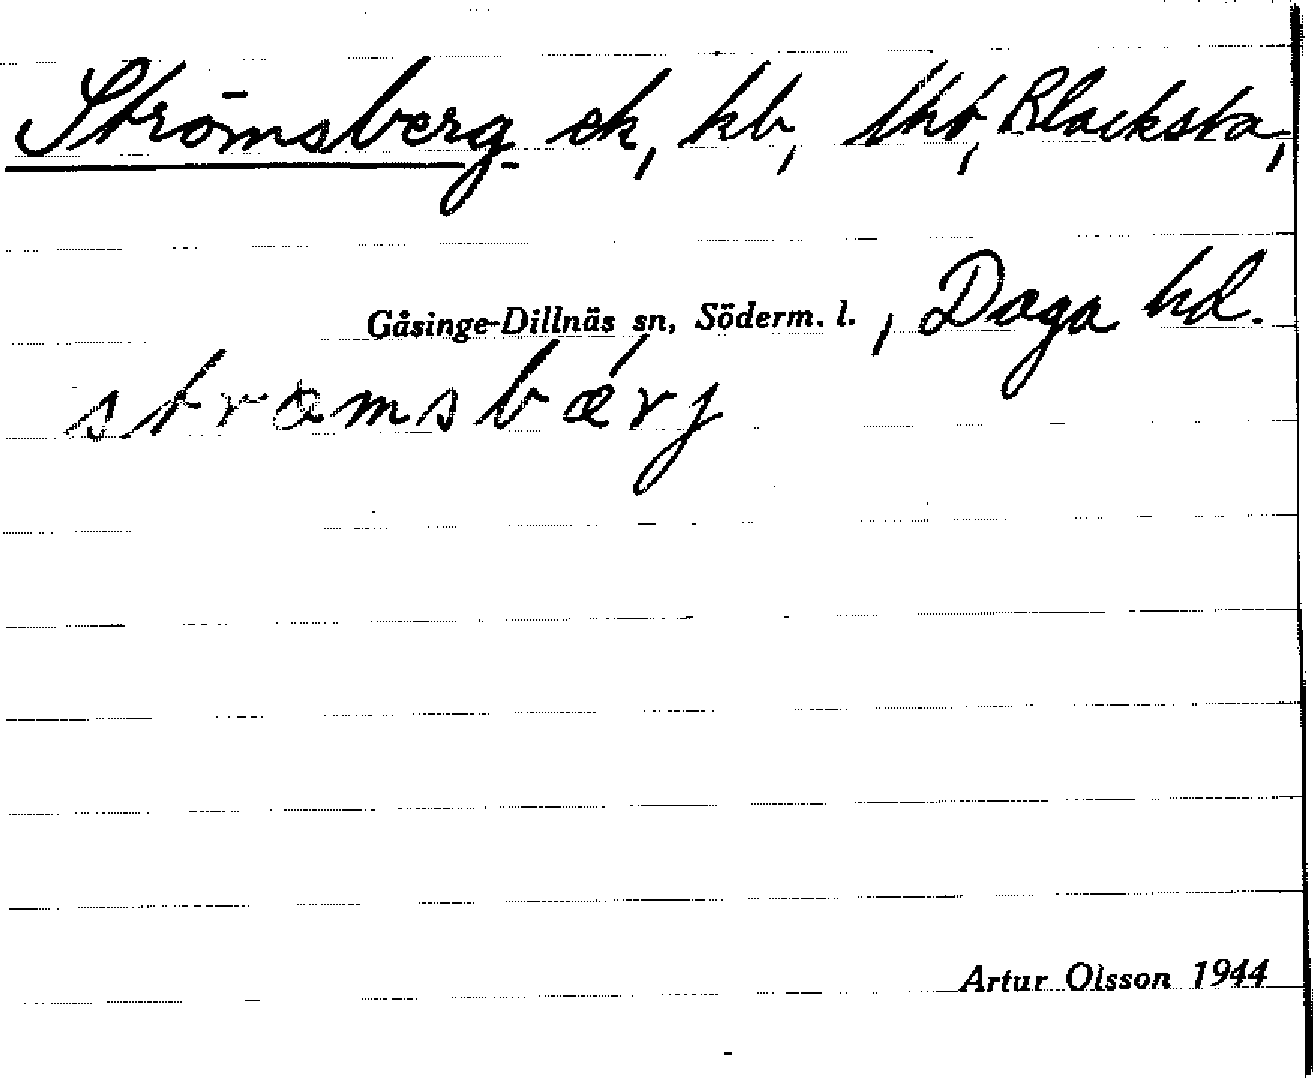 Strömsberg ek, kb, lht, Blacksta,
Gåsinge-Dillnäs sn, Söderm. l., Daga hd.
strömsbærj
Artur Olsson 1944